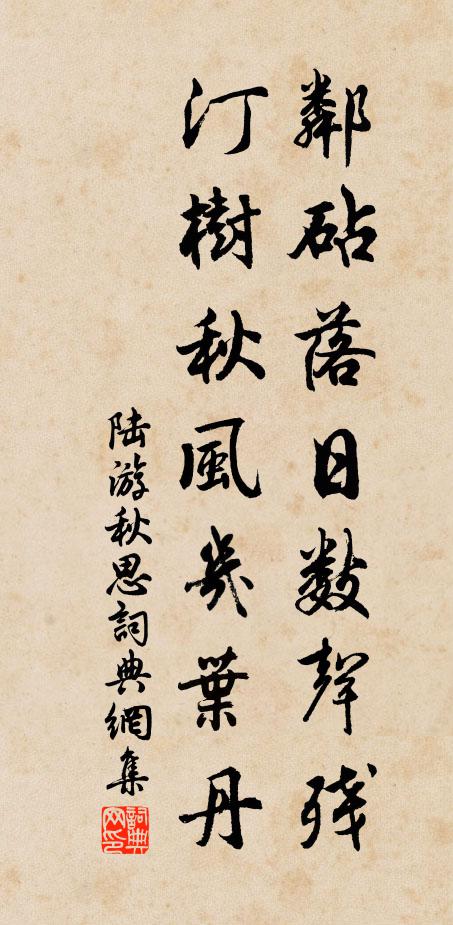 鄰砧落日數聲殘
汀樹秋風幾葉丹
陸游秋思詞典網集
詞典網印